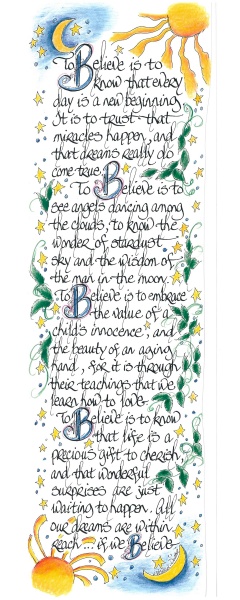 To Believe is to
know that every
day is a new beginning.
It is to trust that
miracles happen, and
that dreams really do
come true.
To Believe is to
see angels dancing among
the clouds, to know the
wonder of stardust
sky and the wisdom of
the man in the moon.
To Believe is to embrace
the value of a
child's innocence, and
the beauty of an aging
hand, for it is through
their teachings that we
learn how to love.
To Believe is to know
that life is a
precious gift to cherish
and that wonderful
surprises are just
waiting to happen. All
our dreams are within
reach ... if we Believe